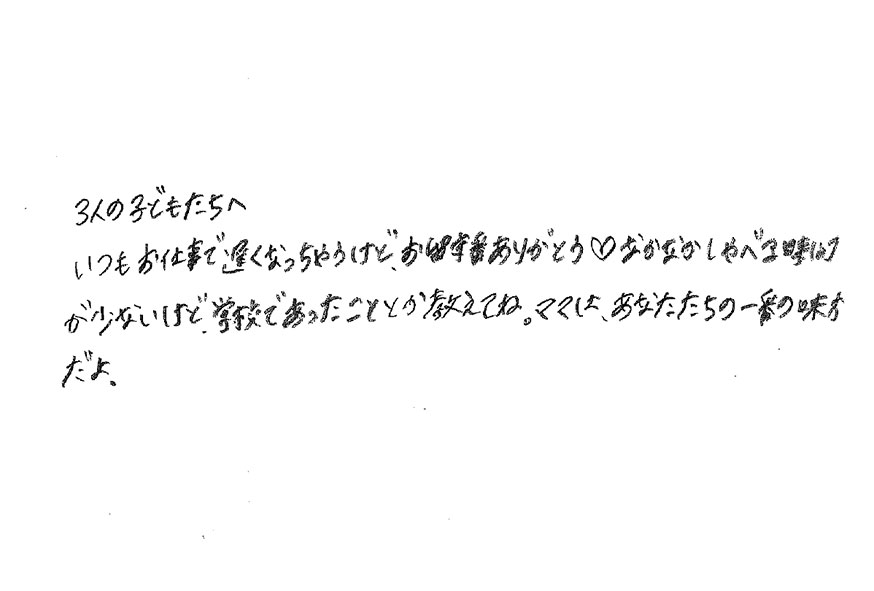 3人の子どもたちへ
いつもお仕事で遅くなっちゃうけど、お留守番ありがとう♡なかなかしゃべる時間
が少ないけど、学校であったこととか教えてね。ママは、あなたたちの一番の味方
だよ。